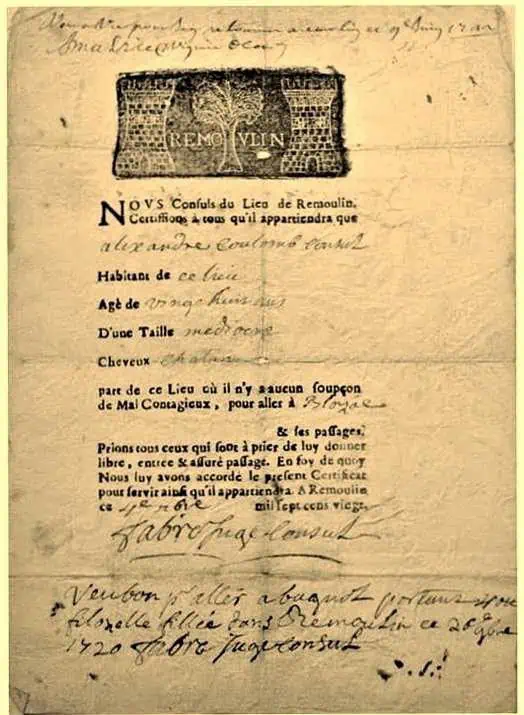 pour
retourner
REMOVLIN
NOVS Consuls du Lieu de Remoulin,
Certiffions à tous qu'il appartiendra que
alexandre coulomb consul
Habitant de ce lieu
Agè de vingt huit ans
D'une Taille mediocre
Cheveux chatan
part de ce Lieu où il n'y a aucun soupçon
de Mal Contagieux, pour aller à
& ses passages,
Prions tous ceux qui sont à prier de luy donner
libre, entrée & assuré passage. En foy de quoy
Nous luy avons accordé le present Certificat
pour servir ainsi qu'il appartiendra. A Remoulin
ce 4e mil sept cens vingt,
fabre Juge Consul
Veu bon pr aller a portant
filozelle fillée dans Remoulin ce 26
1720 fabre Juge Consul